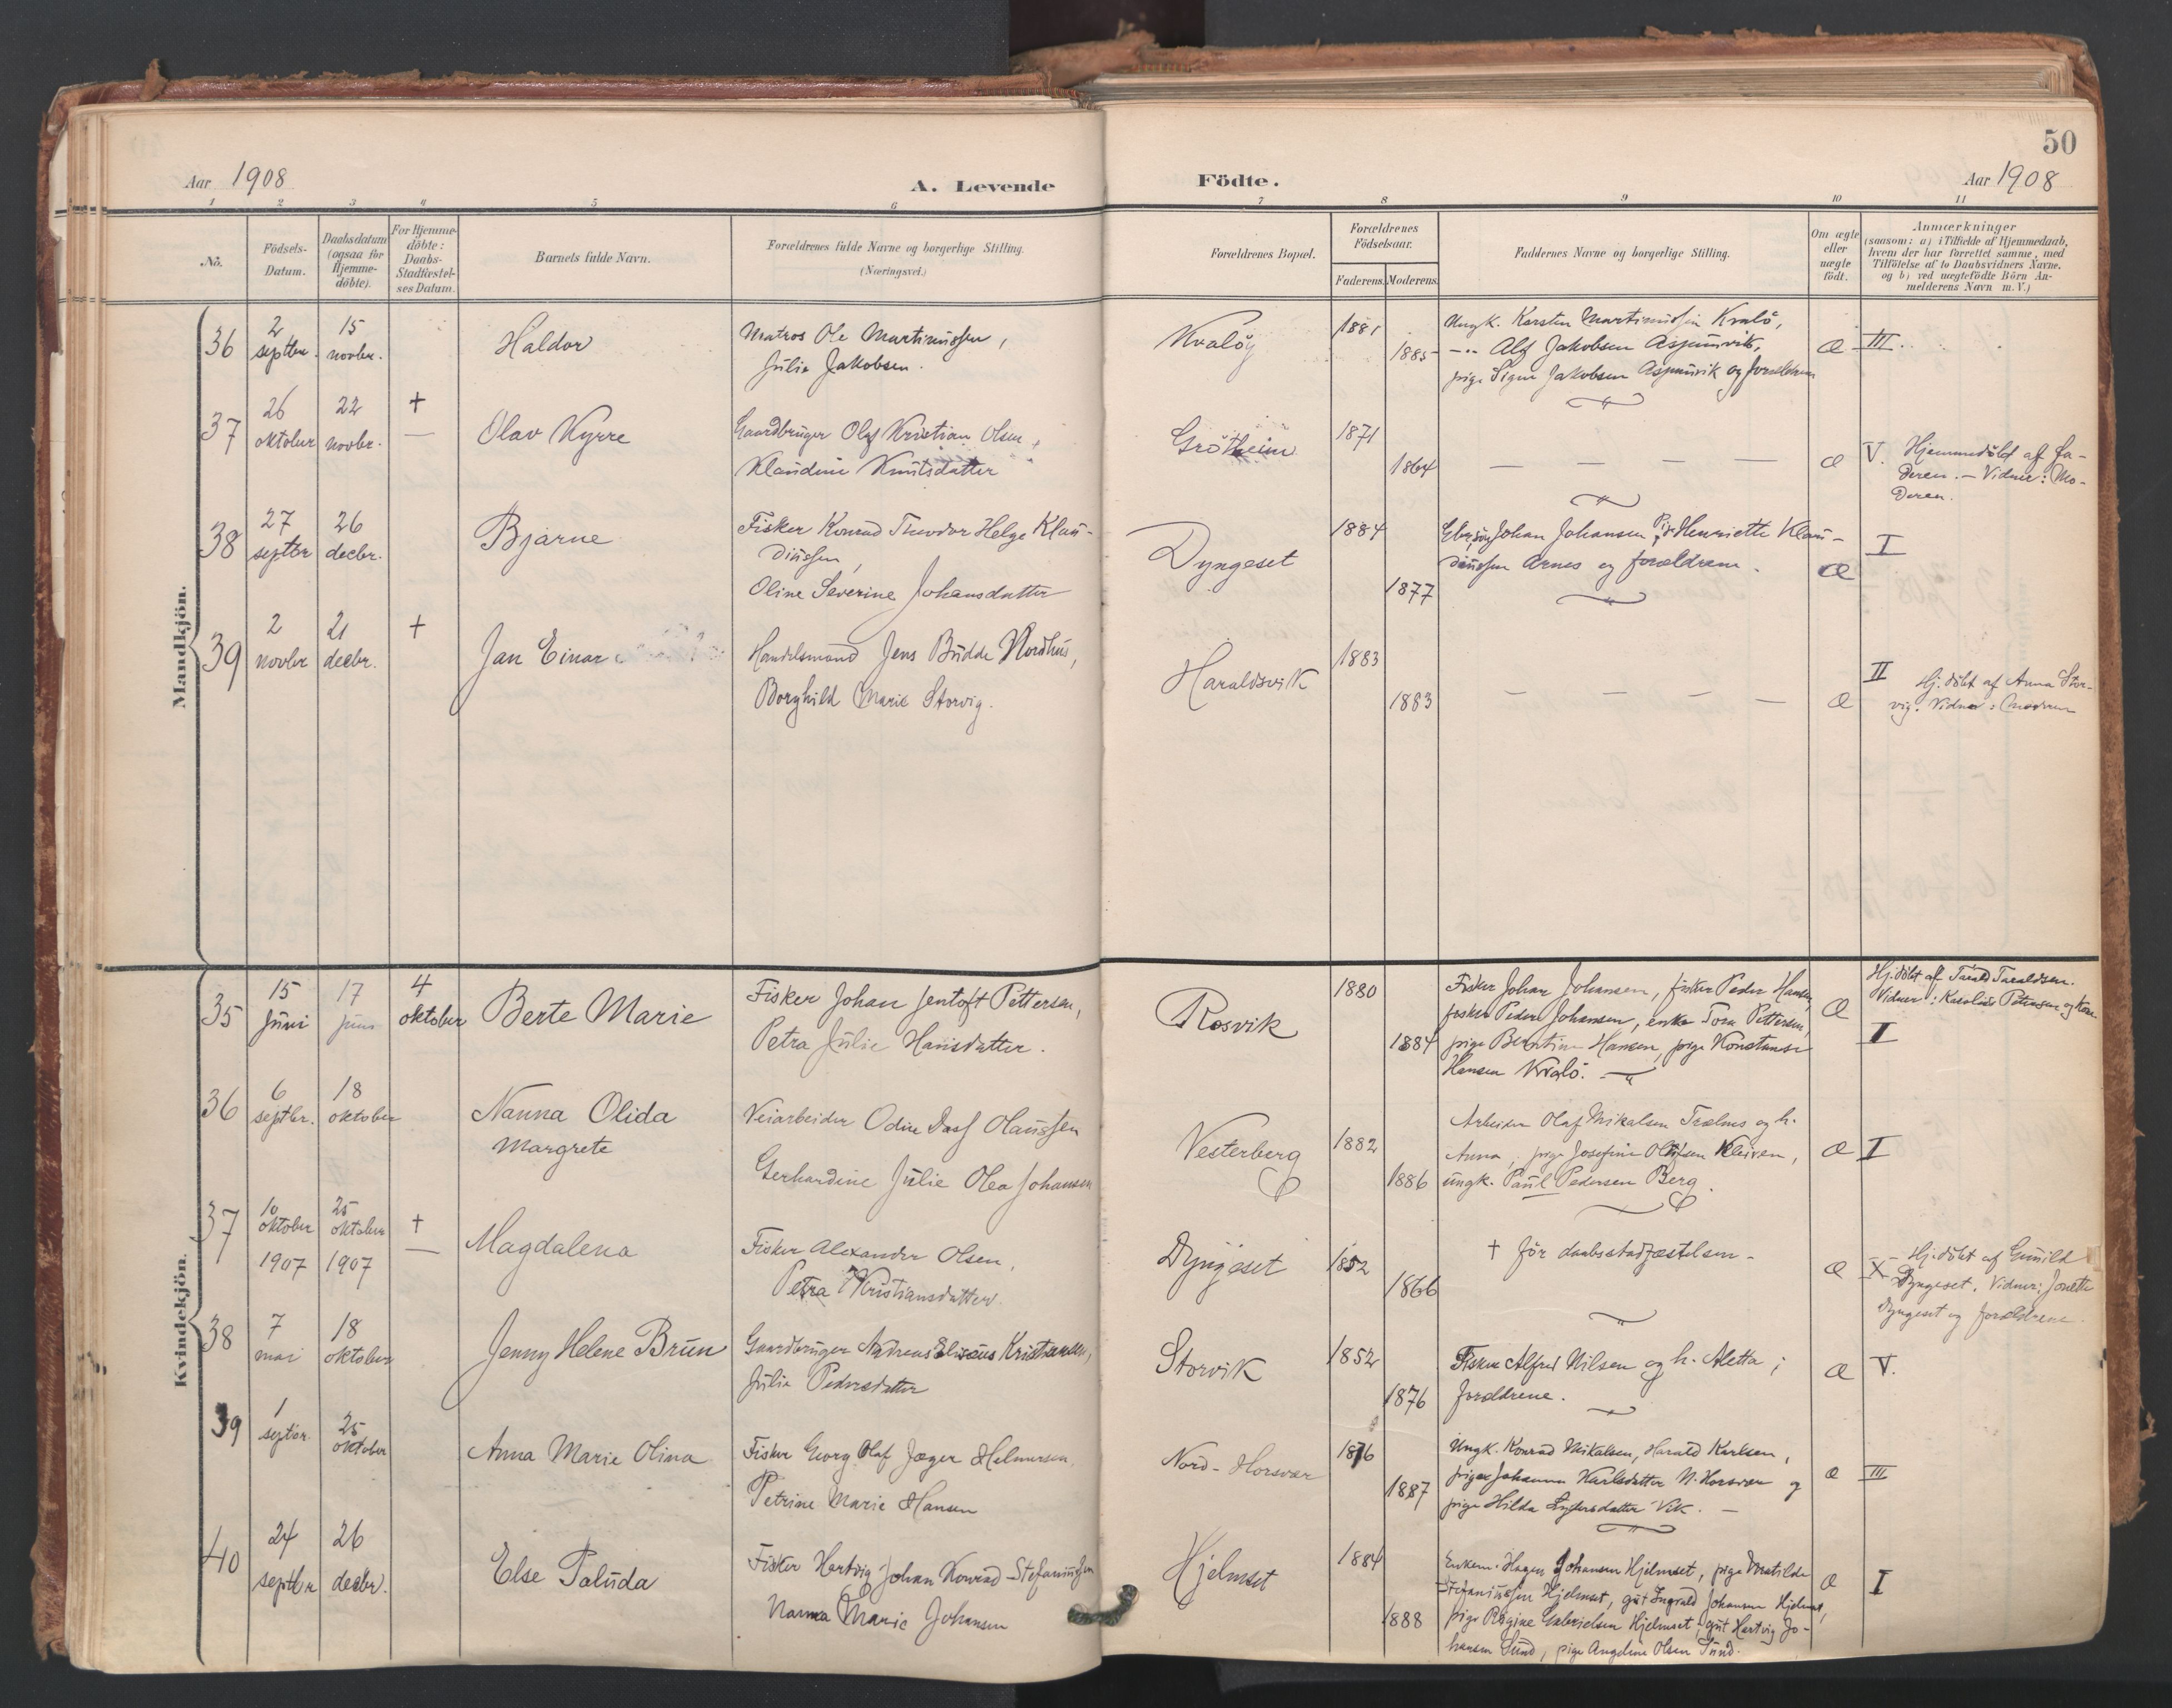 50
Aar 1908
A. Levende
Födte.
Aar 1908
1 2 3 4 5 6 7 8 9 10 11
No.
Födsels-
Datum.
Daabsdatum
(ogsaa for
Hjemme-
döbte).
For Hjemme-
döbte:
Daabs-
Stadfæstel-
ses Datum.
Barnets fulde Navn.
Forældrenes fulde Navne og borgerlige Stilling.
(Næringsvei.)
Forældrenes Bopæl.
Forældrenes
Födselsaar.
Faderens. Moderens.
Faddernes Navne og borgerlige Stilling.
Om ægte
eller
uægte
födt.
Anmærkninger
(saasom: a) i Tilfælde af Hjemmedaab,
hvem der har forrettet samme, med
Tilföielse af to Daabsvidners Navne,
og b) ved uægtefödte Börn An-
melderens Navn m. V.)
Mandkjön.
36
2
septbr.
15
novbr.
Haldor
Matros Ole Martinussen,
Julie Jakobsen.
Kvalöy
1881
1885
Ungk. Karsten Martinussen Kvalö,
-"- Alf Jakobsen Aspmivik,
pige Signe Jakobsen Aspmivik og forældrene
Æ
III.
37
26
oktober
22
novbr.
+
—
Olav Kyrre
Gaardbruger Olaf Kristian Olsen,
Klaudine Knutsdatter
Grötheim
1871
1864
— — — —
Æ
V. Hjemmedöbt af Fa-
deren. — Vidner: Mo-
deren.
38
27
septbr
26
decbr.
Bjarne
Fisker Konrad Theodor Helge Klau-
diussen,
Oline Severine Johansdatter
Dyngeset
1884
1877
Johan Johansen, Pige Henriette Klau-
diussen Arnes og forældrene.
Æ
I
39
2
novbr
21
decbr.
+
Jan Einar
Handelsmand Jens Budde Nordhus,
Borghild Marie Storvig.
Haraldsvik
1883
1883
— — — —
Æ
II
Hj. döbt af Anna Stor-
vig. Vidner: Moderen
Kvindekjön.
35
15
Juni
17
juni
4
oktober
Berte Marie
Fisker Johan Jentoft Pettersen,
Petra Julie Hansdatter.
Rosvik
1880
1884
Fisker Johan Johansen, fisker Peder Hansen,
fisker Peder Johansen, enke Tora Pettersen,
pige Berntine Hansen, pige Konstanse
Hansen Kvalö.
Æ
Hj.döbt af Tarald Taraldsen.
Vidner: Karoline Petersen og
I
36
6
septbr.
18
oktober
Nanna Olida
Margrete
Veiarbeider Odin Dass Olaussen
Gerhardine Julie Olea Johansen
Vesterberg
1882
1886
Arbeider Olaf Mikalsen Trælnes og h.
Anna, pige Josefine Olsen Kleiven,
ungk. Paul Pedersen Berg.
Æ
I
37
10
oktober
1907
25
oktober
1907
+
—
Magdalena
Fisker Alexander Olsen,
Petra Kristiansdatter.
Dyngeset
1852
1866
+ för daabsstadfæstelsen -
Æ
X - Hj.döbt af Gunild
Dyngeset. Vidner: Jonette
Dyngeset og forældrene.
38
7
mai
18
oktober
Jenny Helene Brun
Gaardbruger Andreas Elisæus Kristensen,
Julie Pedersdatter
Storvik
1852
1876
Fisker Alfred Nilsen og h. Aletta;
forældrene.
Æ
V.
39
1
septbr.
25
oktober
Anna Marie Olina
Fisker Georg Olaf Jæger Helmersen,
Petrine Marie Hansen
Nord-Horsvær
1876
1887
Ungk. Konrad Mikalsen, Harald Karlsen,
piger Johanna Karlsdatter N. Horsvær og
pige Hilda Vik.
Æ
III
40
24
septbr
26
decbr.
Else Paluda
Fisker Hertvig Johan Konrad Stefanussen
Nanna Marie Johansen
Hjelmset
1884
1888
Enkem. Hagen Johansen Hjelmset, pige Matilde
Stefanussen Hjelmset, gut Ingvald Johansen Hjelmset,
pige Regine Gabrielsen Hjelmset, gut Hertvig Jo-
hansen Sund, pige Angeline Olsen Sund.
Æ
I